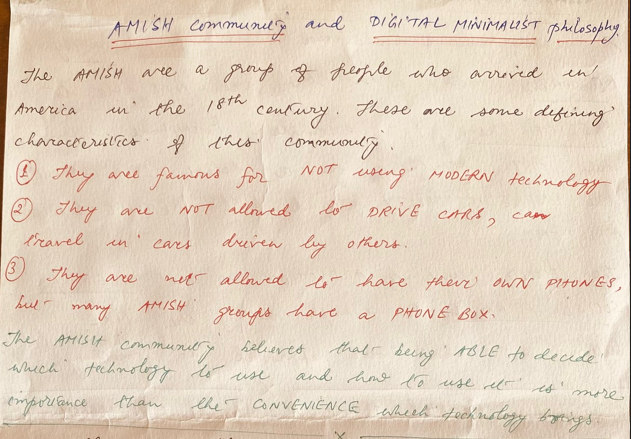 AMISH community and DIGITAL MINIMALIST philosophy.
The AMISH are a group of people who arrived in
America in the 18th century. These are some defining
characteristics of this community.
① They are famous for NOT using MODERN technology
② They are NOT allowed to DRIVE CARS, can
travel in cars driven by others.
③ They are not allowed to have their OWN PHONES,
but many AMISH groups have a PHONE BOX.
The AMISH community believes that being ABLE to decide
which technology to use and how to use it is more
importance than the CONVENIENCE which technology brings.